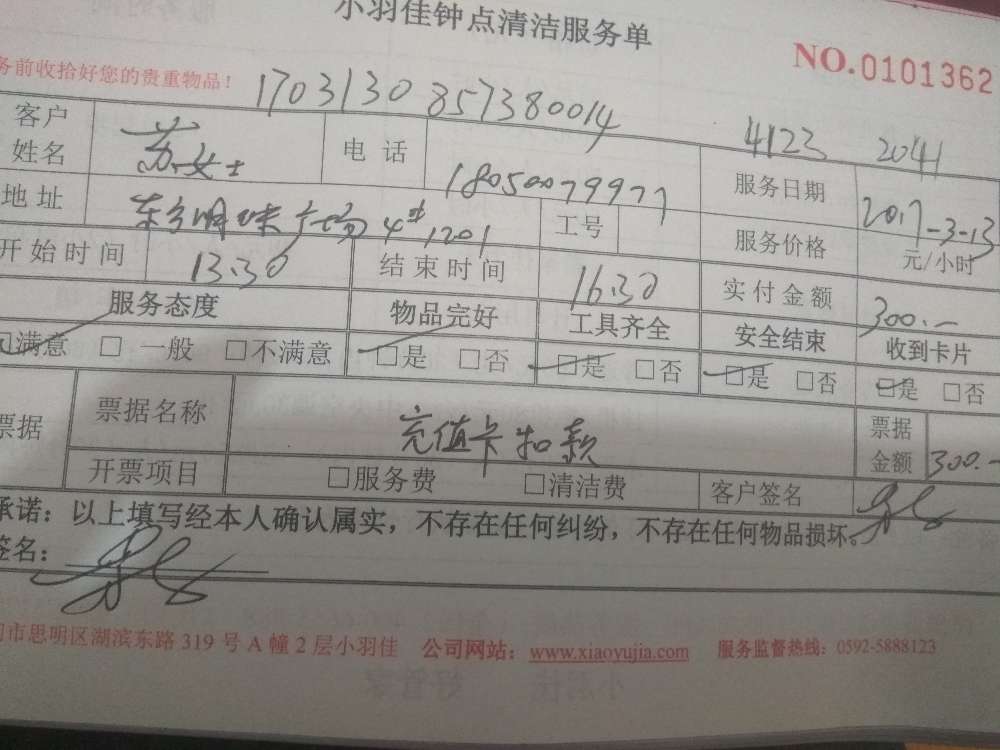 小羽佳钟点清洁服务单
NO.0101362
务前收拾好您的贵重物品！
1703130857380014 4123 2041
客户姓名 苏女士 电话 18050079977 服务日期 2017-3-13
地址 东方明珠广场4#1201 工号 服务价格 元/小时
开始时间 13.30 结束时间 16.30 实付金额 300.-
服务态度 物品完好 工具齐全 安全结束 收到卡片
满意 □ 一般 □不满意 □是 □否 □是 □否 □是 □否 □是 □否
票据 票据名称 充值卡扣款 票据金额 300.-
开票项目 □服务费 □清洁费 客户签名
承诺：以上填写经本人确认属实，不存在任何纠纷，不存在任何物品损坏。
签名：
市思明区湖滨东路319号A幢2层小羽佳 公司网站：www.xiaoyujia.com 服务监督热线：0592-5888123